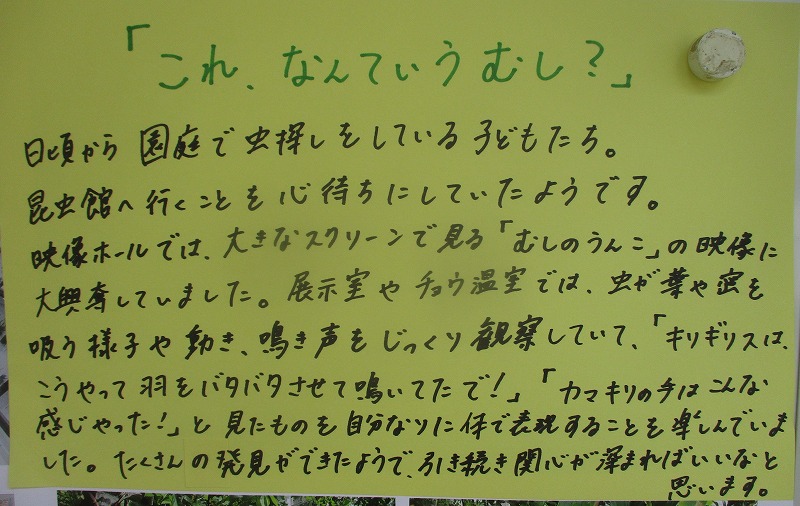 「これ、なんていうむし?」
日頃から園庭で虫探しをしている子どもたち。
昆虫館へ行くことを心待ちにしていたようです。
映像ホールでは、大きなスクリーンで見る「むしのうんこ」の映像に
大興奮していました。展示室やチョウ温室では、虫が葉や密を
吸う様子や動き、鳴き声をじっくり観察していて、「キリギリスは、
こうやって羽をバタバタさせて鳴いてたで!」「カマキリの手はこんな
感じやった!」と見たものを自分なりに体で表現することを楽しんでいま
した。たくさんの発見ができたようで、引き続き関心が深まればいいなと
思います。